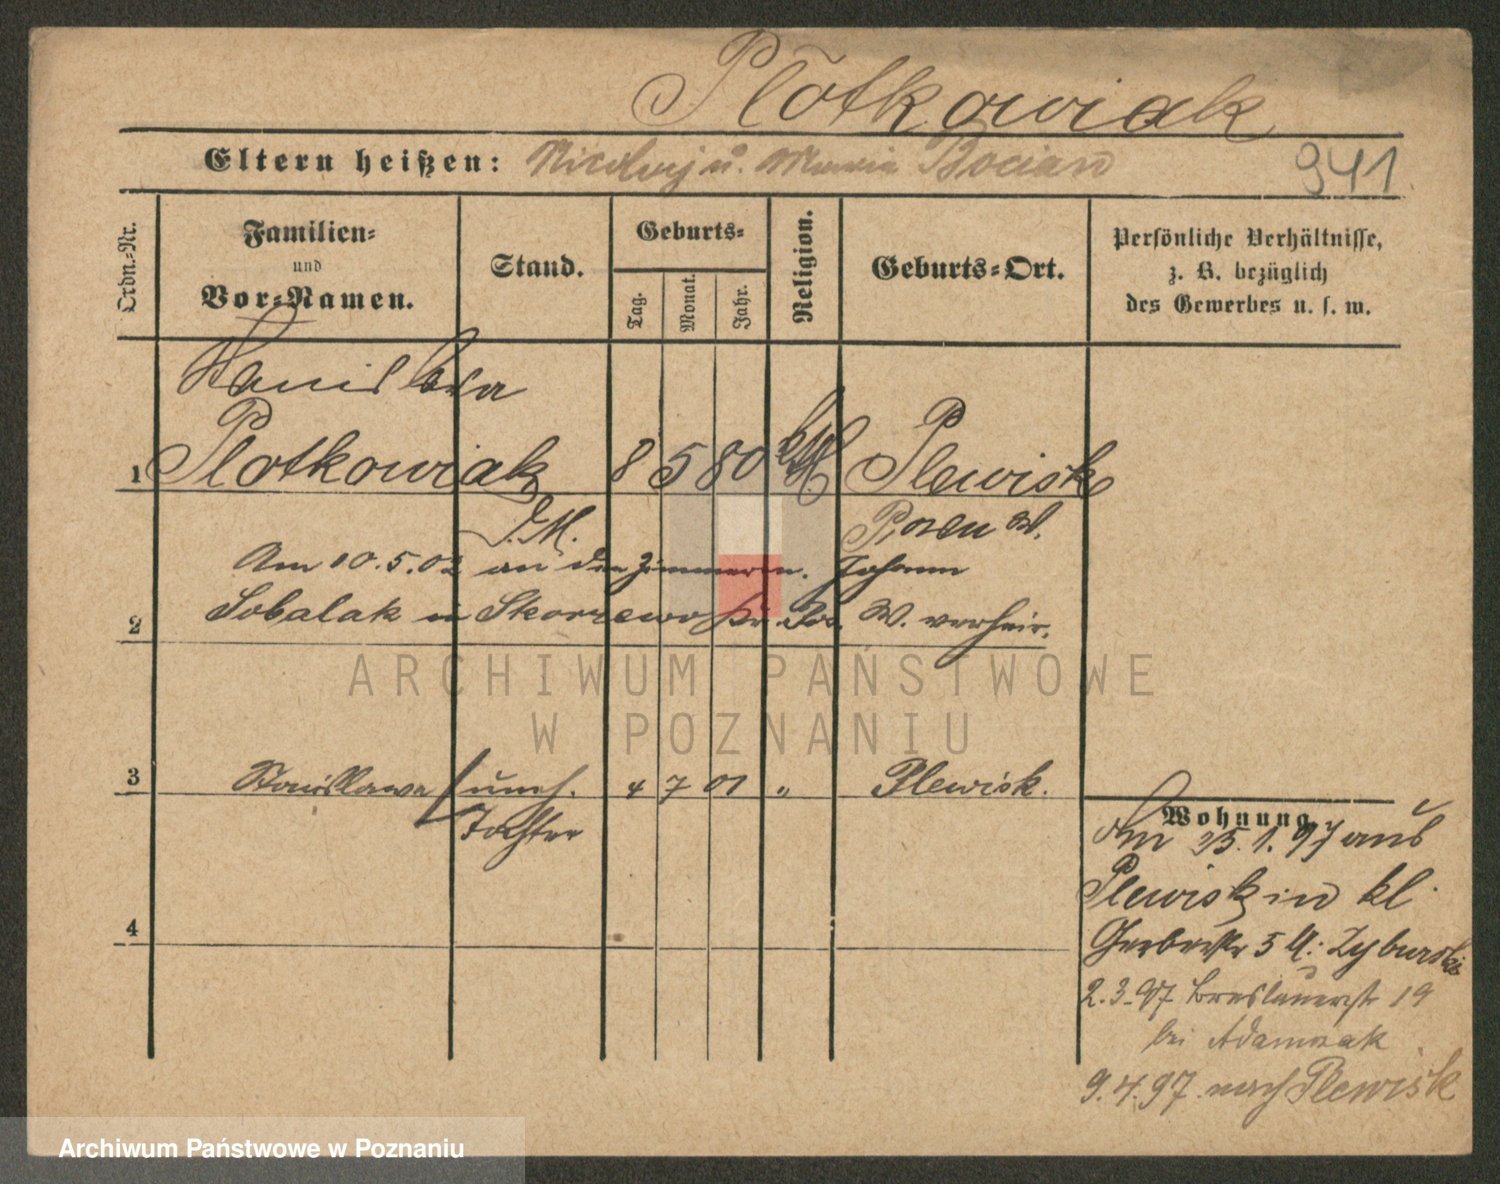 Plotkowiak
Eltern heißen: Nicolaj u. Maria Bocian
941
Ordn.-Nr.
Familien-
und
Vor-Namen.
Stand.
Geburts-
Tag.
Monat.
Jahr.
Religion.
Geburts-Ort.
Persönliche Verhältnisse,
z. B. bezüglich
des Gewerbes u. s. w.
Stanislawa
1 Plotkowiak 8 5 80 kth Plewisk
D. M. Posen W.
Am 10.5.02 an den Zimmerm. Johann
2 Sobalak in Skorzewo Kr. Pos. W. verheir.
ARCHIWUM PAŃSTWOWE
W POZNANIU
3 Stanislawa uneh. 4 7 01 " Plewisk.
Tochter
4
Wohnung.
Am 25.1.97 aus
Plewisk in kl.
Gerberstr 5 b: Zyburski
2.3.97 Breslauerstr 19
bei Adamczak
9.4.97. nach Plewisk
Archiwum Państwowe w Poznaniu